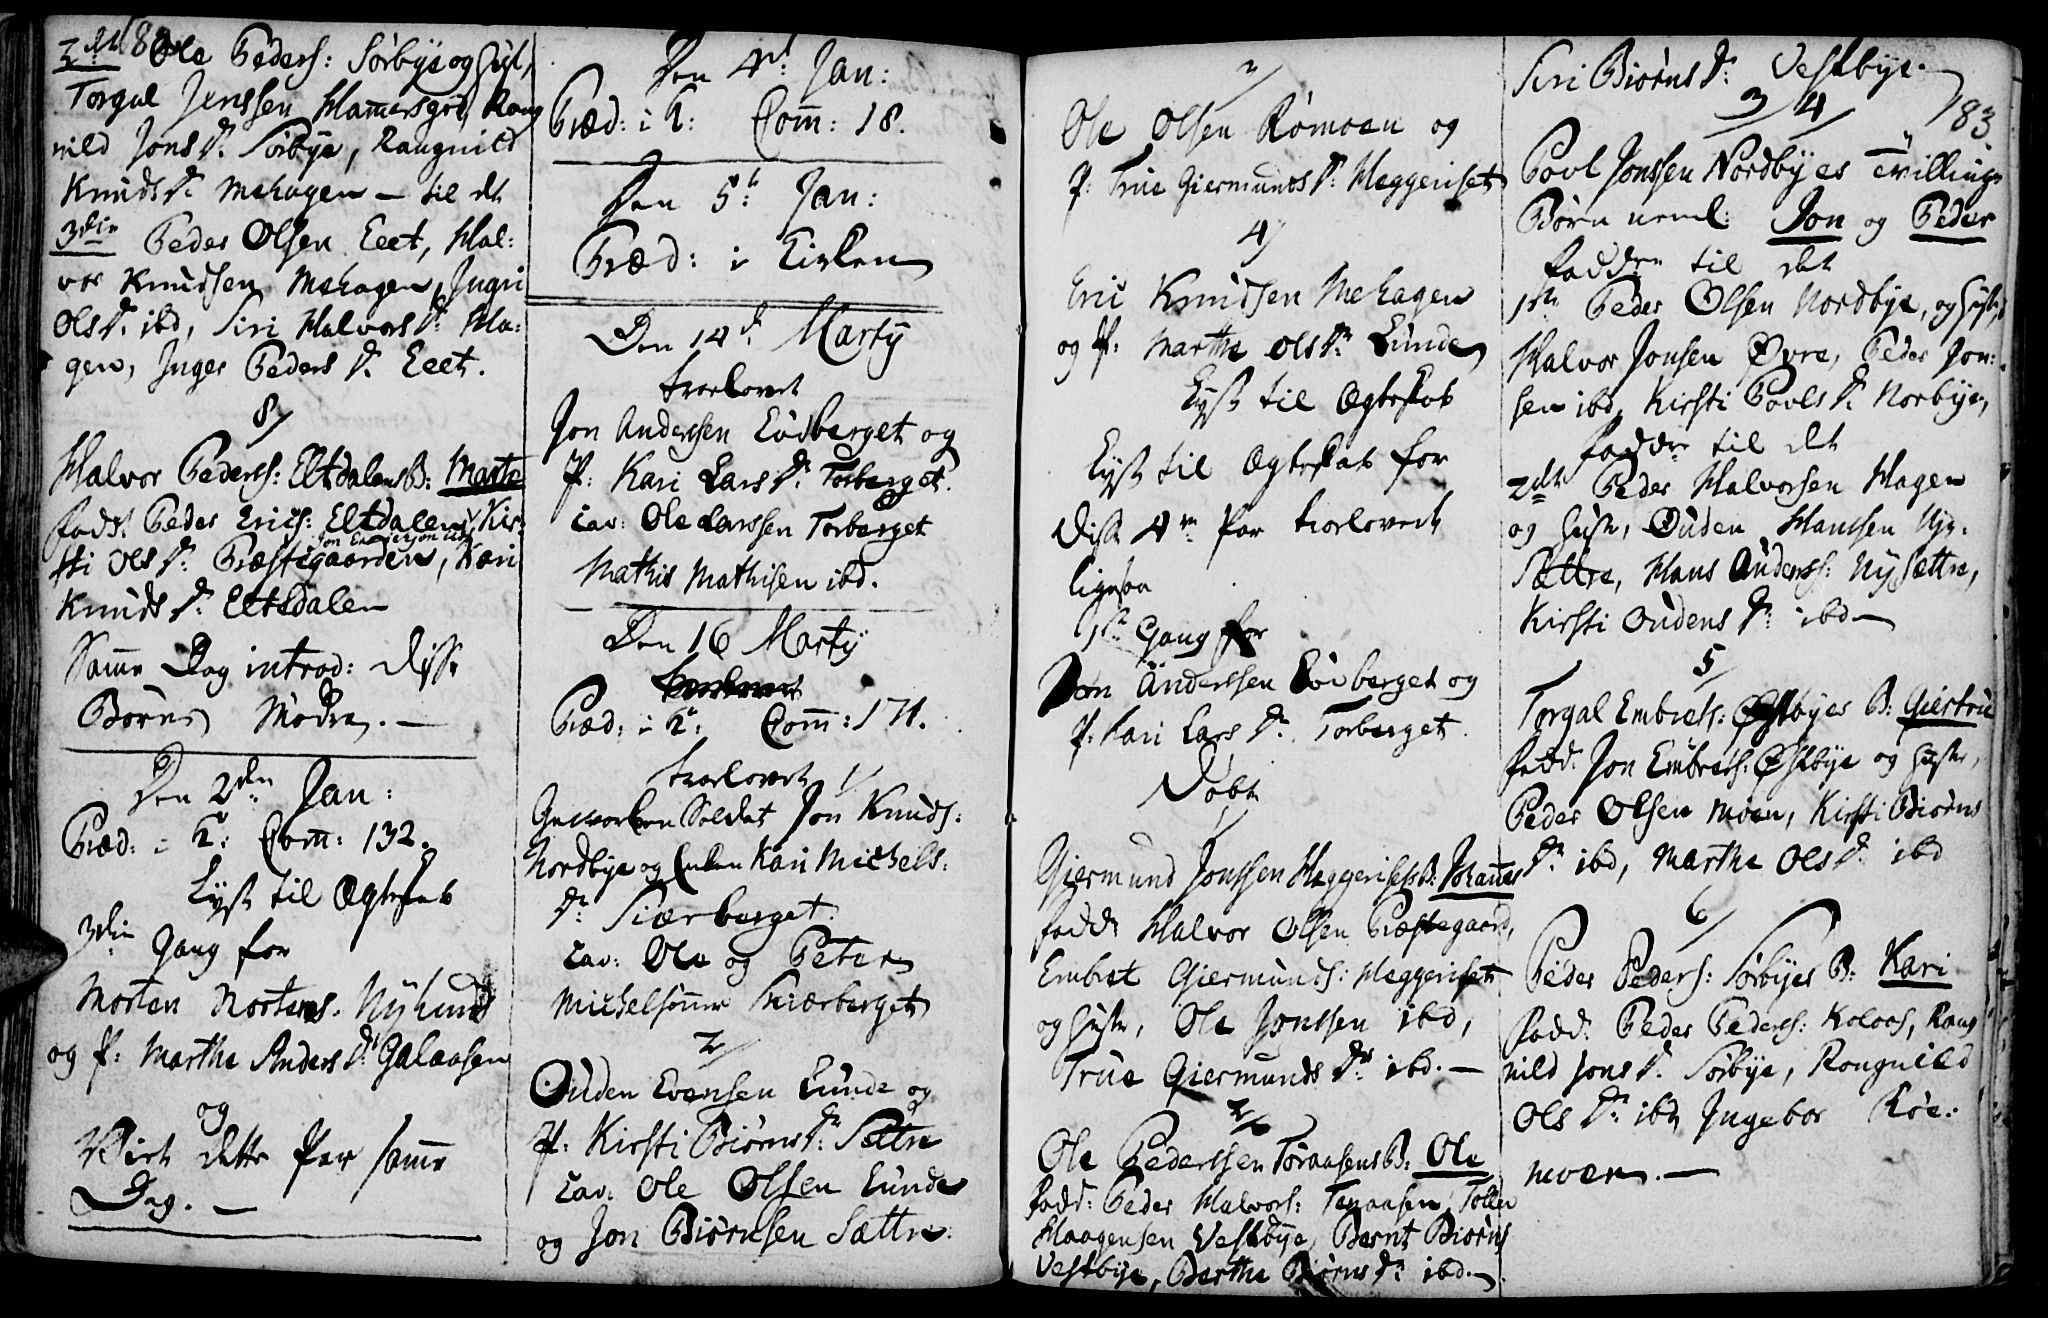 2det Ole Peders: Sørbye og hust,
Torgal Jenssen Hammersgrd, Rang
nild Jons Dr. Sørbye, Rangnild
Knuds Dr. Mehagen – til det
3die Peder Olsen Eeet, Hal:
vor Knudsen Mehagen, Ingri
Ols Dr. ibd, Siri Halvors Dr. Ha:
gen, Inger Peders Dr. Eeet.
8/
Halvor Peders: Eltdalens B: Marte
fadd: Peder Erics: Eltdalen, Kir:
sti Ols Dr. Præstegaarden, Kari
Knuds Dr. Eltsdalen
Samme Dag introd: disse
Børns Mødre. –
Den 2den Jan:
Præd: i K: Com: 132.
Lyst til Ægteskab
3die Gang for
Morten Mortens. Nylund
og P: Marthe Anders Dr Galaasen
og
Viet dette Par samme
Dag. –
Den 4de Jan:
Præd: i K: Com: 18.
Den 5te Jan:
Præd: i Kirken
Den 14de Martij
trolovet
Jon Anderssen Løvberget og
P: Kari Lars Dr. Torberget.
Cav: Ole Larssen Torberget
Mathis Mathisen ibd.
Den 16 Martij
Præd: i K: Com: 171.
trolovet 1/
Gevorben Soldat Jon Knuds:
Nordbye og Enken Kari Michels:
Dr. Skiærberget.
Cav: Ole og Peter
Michelsønner Skiærberget
2/
Ouden Evensen Lunde og
P: Kirsti Biørns Dr. Sættre
Cav: Ole Olsen Lunde
og Jon Biørnsen Sættre.
3/
Ole Olsen Rømoen og
P: True Giermunds Dr: Heggeriset
4/
Eric Knudsen Mehagen
og P: Marthe Ols Dr Lunde
Lyst til Ægteskab
Lyst til Ægteskab for
disse 4re Par trolovede
ligesaa
1ste Gang for
Jon Anderssen Løvberget og
P: Kari Lars Dr. Torberget.
Døbt
1/
Giermund Jonssen Heggerisets B: Johannes
fadd: Halvor Olsen Præstegaard,
Embret Giermunds: Heggeriset
og hustr, Ole Jonssen ibd,
True Giermunds Dr ibd. –
2/
Ole Pederssen Toraasens B: Ole
fadd: Peder Halvors: Toraasen, Tollev
Haagensen Vestbye, Bernt Biørns
Vestbye, Berthe Biørns Dr. ibd.
Siri Biørns Dr: Vestbye.
183
3/ 4/
Povl Jonssen Nordbyes Tvillinge
Børn neml: Jon og Peder
faddere til det
1ste Peder Olsen Nordbye, og hustr,
Halvor Jonsen Øvre, Peder Jon:
sen ibd, Kirsti Povls Dr Norbye,
faddere til det
2det Peder Halvorsen Hagen
og hustr, Ouden Hanssen Nye
Sættre, Hans Oudens: Nysættre,
Kirsti Oudens Dr: ibd
5/
Torgal Embrets: Østbyes B: Giertrue
fadd. Jon Embrets: Østbye og hustr,
Peder Olsen Moen, Kirsti Biørns
Dr ibd, Marthe Ols Dr ibd
6/
Peder Peders: Sørbyes B: Kari
fadd: Peder Peders: Kolaas, Rang
nild Jons Dr. Sørbye, Rongnild
Ols Dr ibd Ingebor Røe:
moen. –